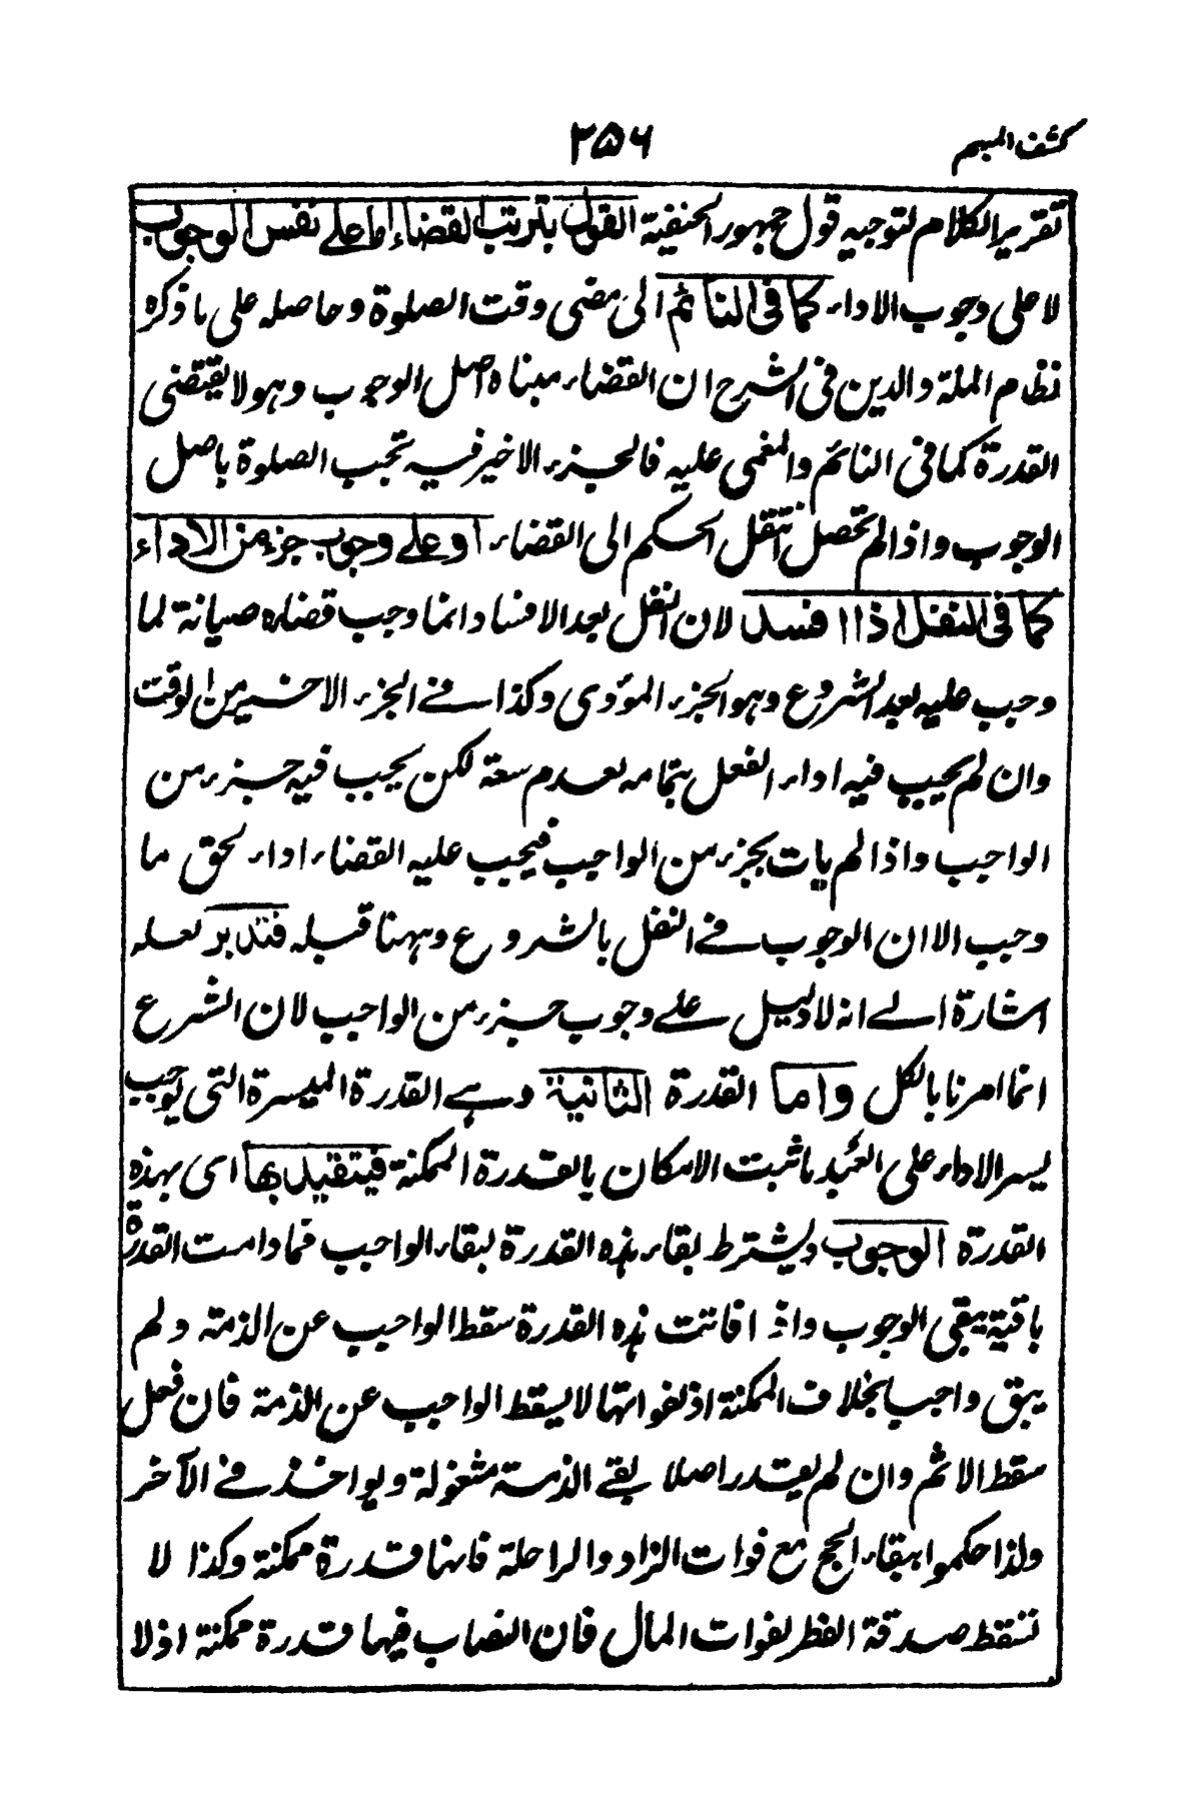 كشف المبهم
۲۵۶
تقرير الكلام لتوجيه قول جمهور الحنفية القول بترتب القضاء اما على نفس الوجوب
لا على وجوب الاداء كما فى النائم الى مضى وقت الصلوة وحاصله على ما ذكره
نظام الملة والدين فى الشرح ان القضاء مبناه اصل الوجوب وهو لا يقتضى
القدرة كما فى النائم والمغمى عليه فالجزء الاخير فيه تجب الصلوة باصل
الوجوب واذا لم تحصل انتقل الحكم الى القضاء او على وجوب جزء من الاداء
كما فى النفل اذا افسد لان النفل بعد الافساد انما وجب قضاءه صيانة لما
وجب عليه بعد الشروع وهو الجزء المؤدى وكذا فى الجزء الاخير من الوقت
وان لم يجب فيه اداء الفعل بتمامه لعدم سعة لكن يجب فيه جزء من
الواجب واذا لم يات بجزء من الواجب فيجب عليه القضاء اداء لحق ما
وجب الا ان الوجوب فى النفل بالشروع وههنا قبله فتدبر لعله
اشارة الى انه لا دليل على وجوب جزء من الواجب لان الشرع
انما امرنا بالكل واما القدرة الثانية وهى القدرة الميسرة التى يوجب
يسر الاداء على العبد ما ثبت الامكان بالقدرة الممكنة فيتقيد بها اى بهذه
القدرة الوجوب ويشترط بقاء هذه القدرة لبقاء الواجب فما دامت القدرة
باقية يبقى الوجوب واذا فاتت هذه القدرة سقط الواجب عن الذمة ولم
يبق واجب بخلاف الممكنة اذ لفواتها لا يسقط الواجب عن الذمة فان فعل
سقط الاثم وان لم يقدر اصلا بقى الذمة مشغولة ويواخذ فى الآخر
ولذا حكموا ببقاء الحج مع فوات الزاد والراحلة فانها قدرة ممكنة وكذا لا
تسقط صدقة الفطر لفوات المال فان النصاب فيها قدرة ممكنة اذ لا